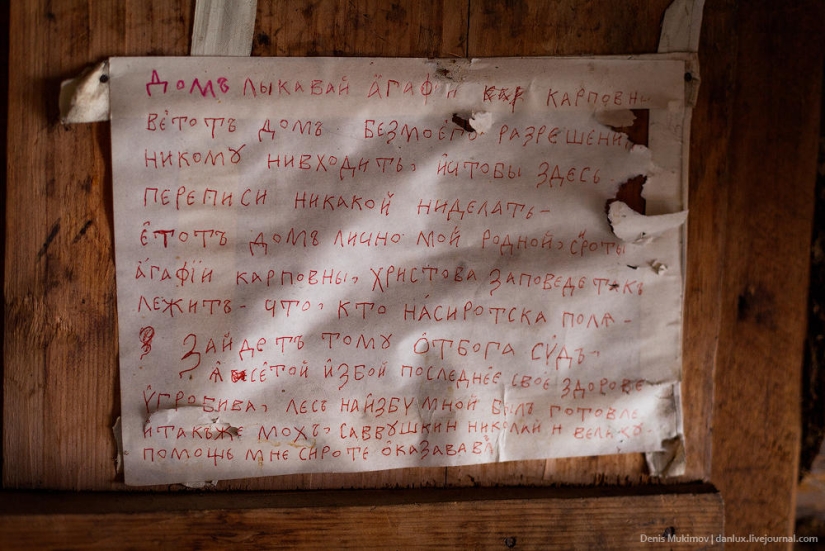 Домъ лыкавай а́гафіи карповн
ве́тотъ домъ безмоего разрешени
никому нивходить, и́чтобы здесь
переписи никакой ниделать-
е́тотъ домъ лично мой родной, сироты
а́гафіи карповны, христова заповеде такъ
лежитъ- что, кто на́сиротска поля-
зайдетъ тому о́тбога су́дъ-
я́ се́той и́збой последнее свое здорове
угробива, лесъ наи́збу мной былъ готовле
итакъже мохъ, саввушкин николай н велику-
помощь мне сироте о́казавав
Denis Mukimov | danlux.livejournal.com